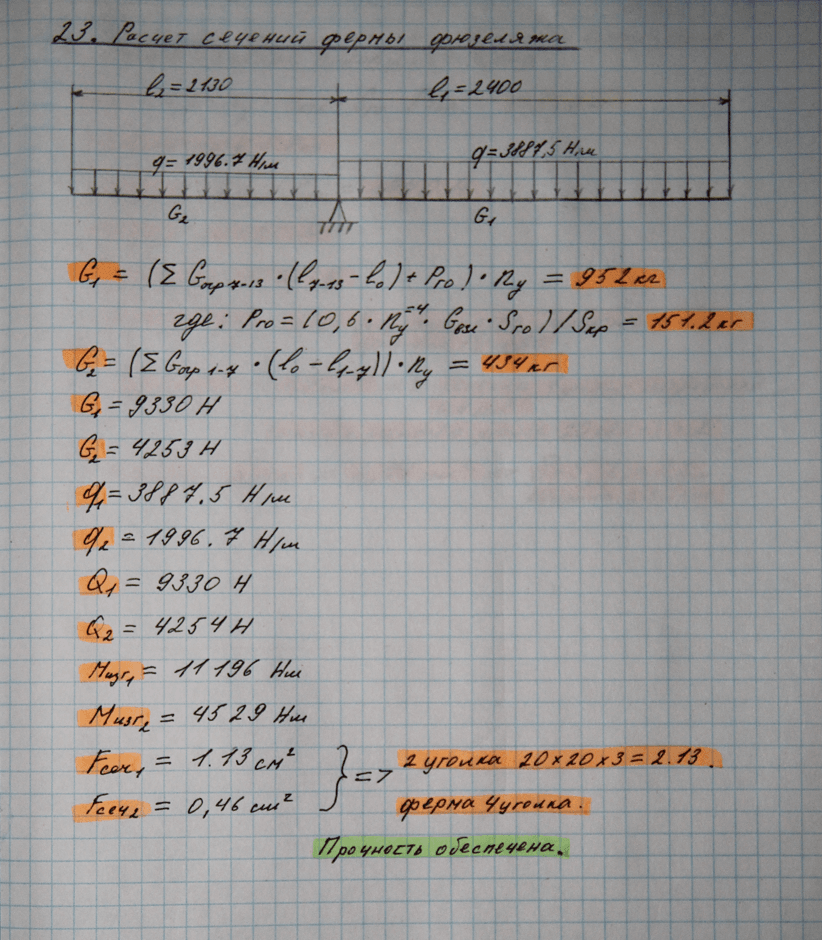 23. Расчет сечений фермы фюзеляжа
l₂=2130 l₁=2400
q=1996.7 Н/м q=3887,5 Н/м
G₂ G₁
G₁ = (Σ Gагр 7-13 · (l₇₋₁₃ – l₀) + Pго) · nу = 952 кг
где: Pго = (0,6 · nу⁼⁴ · Gвзл · Sго) / Sкр = 151.2 кг
G₂ = (Σ Gагр 1-7 · (l₀ – l₁₋₇)) · nу = 434 кг
G₁ = 9330 Н
G₂ = 4253 Н
q₁ = 3887.5 Н/м
q₂ = 1996.7 Н/м
Q₁ = 9330 Н
Q₂ = 4254 Н
Mизг₁ = 11196 Нм
Mизг₂ = 4529 Нм
Fсеч₁ = 1.13 см² } => 2 уголка 20×20×3 = 2.13.
Fсеч₂ = 0,46 см² ферма 4 уголка.
Прочность обеспечена.